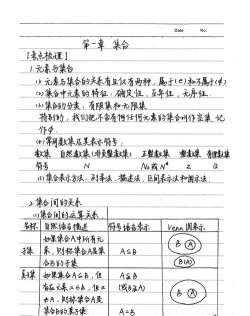 Date No.
第一章 集合
【考点梳理】
1.元素与集合
(1) 元素与集合的关系有且仅有两种,属于(∈)和不属于(∉)
(2) 集合中元素的特征:确定性,互异性,无序性.
(3) 集合的分类:有限集和无限集.
特别的,我们把不含有任何元素的集合叫作空集,记
作∅.
(4) 常用数集及其表示符号:
数集 自然数集(非负整数集) 正整数集 整数集 有理数集
符号 N N₊或N* Z Q
(5) 集合表示方法:列举法、描述法、区间表示法和图示法.
2.集合间的关系
(1) 集合间的运算关系.
名称 自然语言描述 符号语言表示 Venn图表示.
如果集合A中所有元
子集 素,则称集合A是集 A⊆B
合B的子集
真子集 如果集合A⊆B,但 A⊊B
存在元素x∈B,但x
∉A,则称集合A是
集合B的真子集 A=B